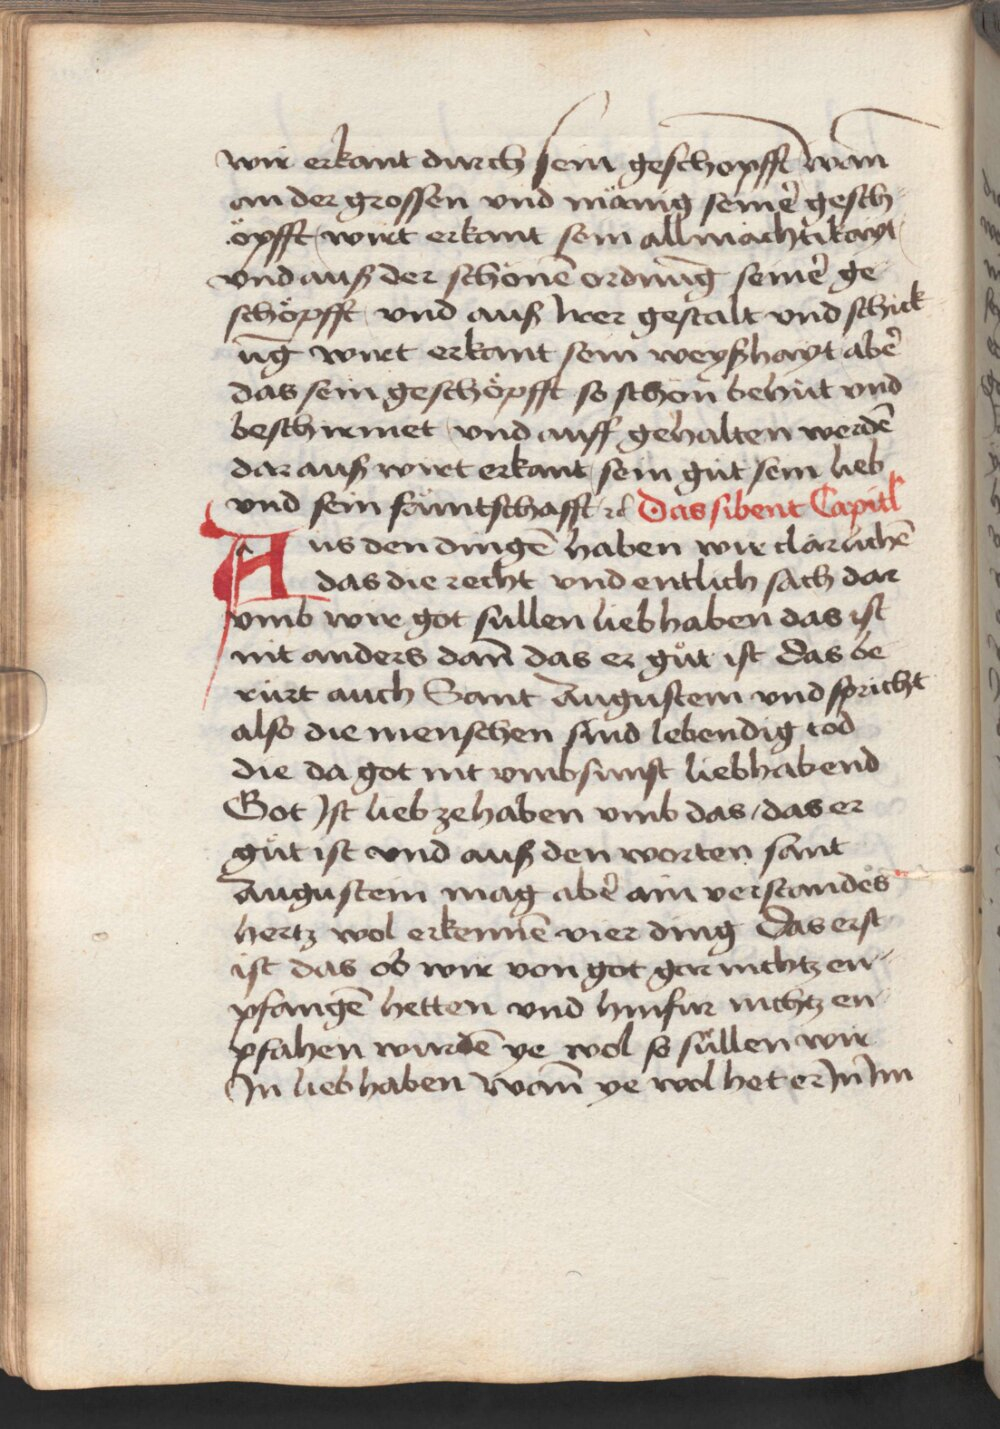 wir erkant durch sein geschopfft wañ
an der grossen vnd mänig seine͛ gesch-
öpfft wirt erkant sein allmächtikayt
vnd auß der schönē ordnūg seine͛ ge
schöpfft vnd auß irer gestalt vnd schick
ūg wirt erkant sein weyßhayt abe͛
das sein geschöpfft so schön behüt vnd
beschirmet vnd auff gehalten werdē
dar auß wirt erkant sein güt sein lieb
vnd sein fräintschafft ꝛc Das sibent Capitl
Aus den dingē haben wir clärlichē
das die recht vnd entlich sach dar
vmb wir got süllen lieb haben das ist
nit anders dañ das er gůt ist das be
rürt auch Sant Augustein vnd spricht
also die menschen sind lebendig tod
die da got nit vmbsunst liebhabend
Got Ist lieb ze haben vmb das / das er
gůt ist vnd auß den worten sant
Augustein mag abe͛ ain verstandes
hertz wol erkennē vier ding Das erst
ist das ob wir von got gar nichtz en-
pfangē hetten vnd hinfür nichtz en-
pfahen wurdē ye wol so süllen wir
In lieb haben Wañ ye wol het er In Im